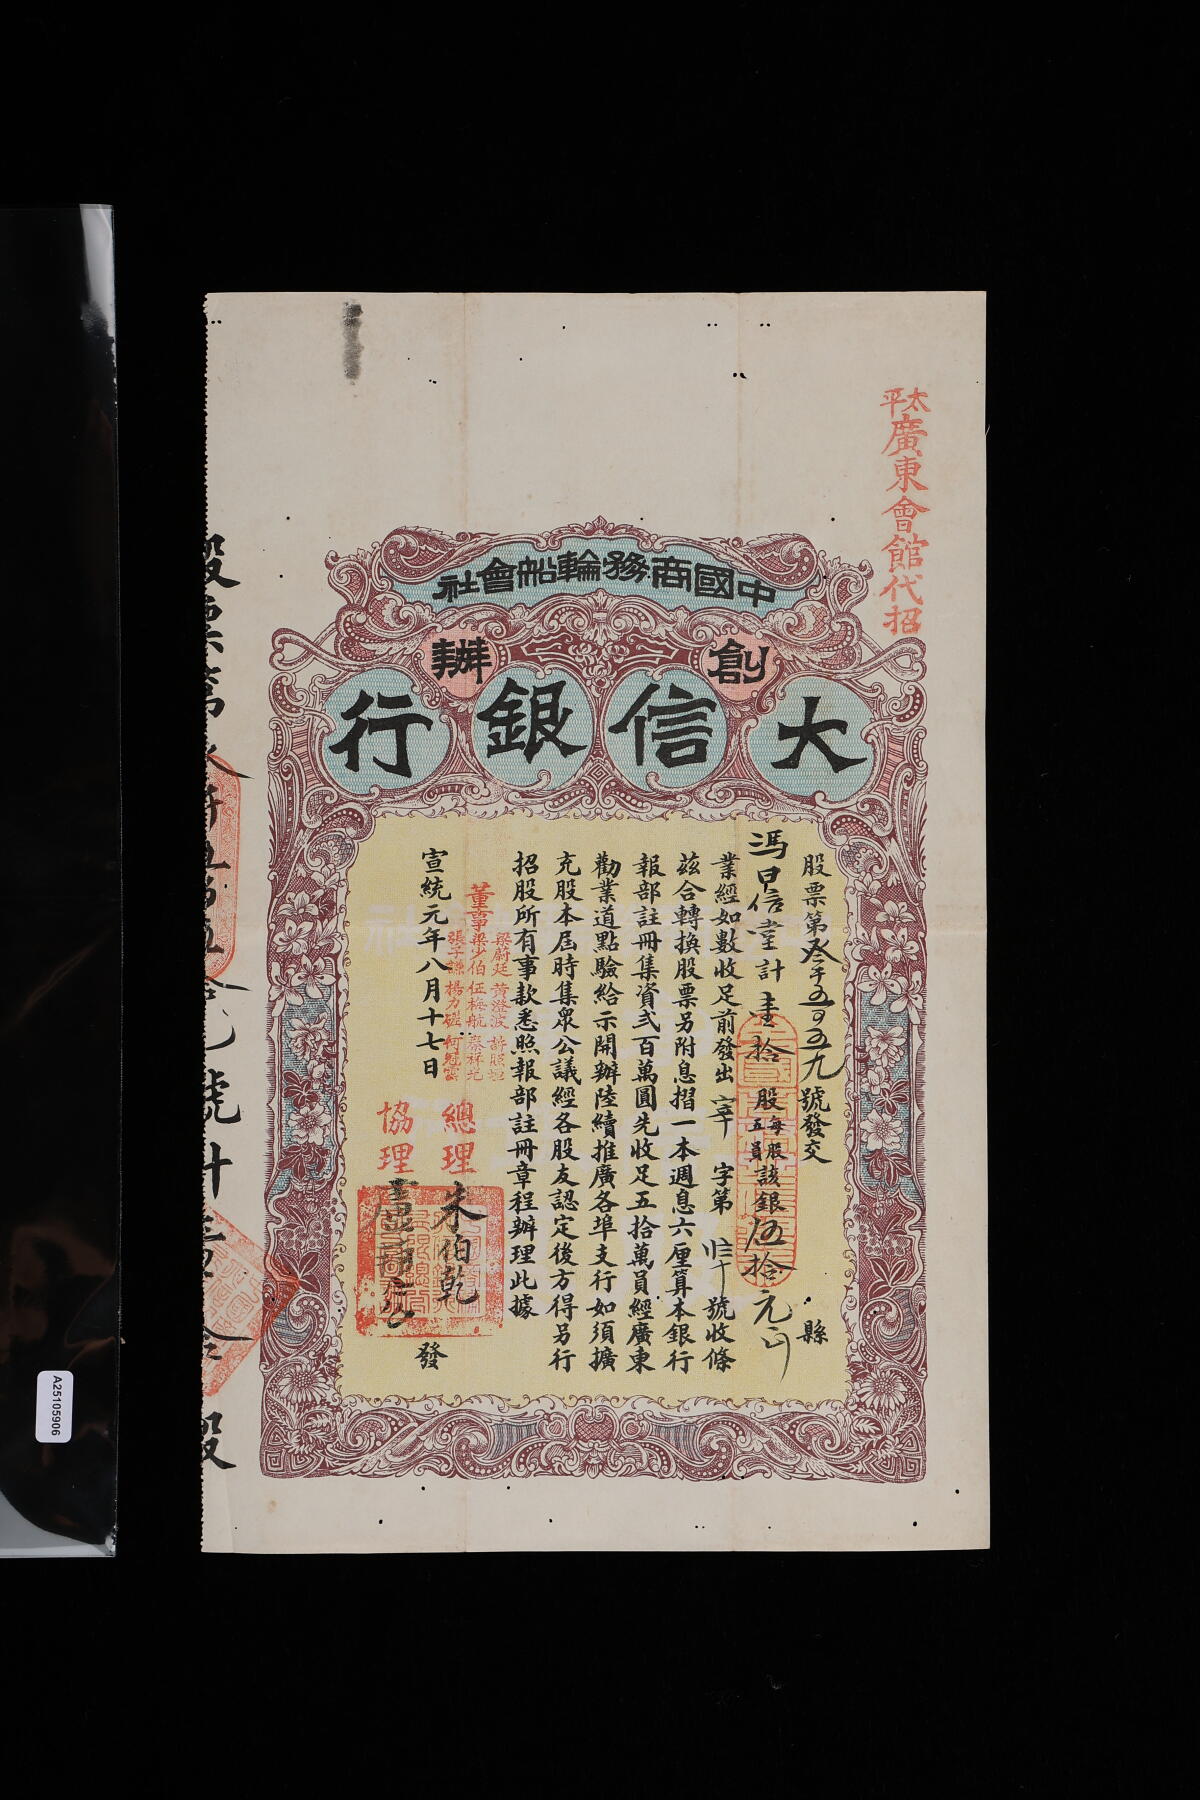 太平廣東會館代招
中國商務輪船會社
創辦
大信銀行
股票第叁千五百五九號發交 縣
馮昌信堂計壹拾股每股五員該銀伍拾元正
業經如數收足前發出 字第 號收條
茲合轉換股票另附息摺一本週息六厘算本銀行
報部註冊集資弍百萬圓先收足五拾萬員經廣東
勸業道點驗給示開辦陸續推廣各埠支行如須擴
充股本屆時集眾公議經各股友認定後方得另行
招股所有事款悉照報部註冊章程辦理此據
董事
梁蔚廷 黃澄波
梁少伯 伍梅航
張子謙
宣統元年八月十七日
總理 朱伯乾
協理
發
A25105906